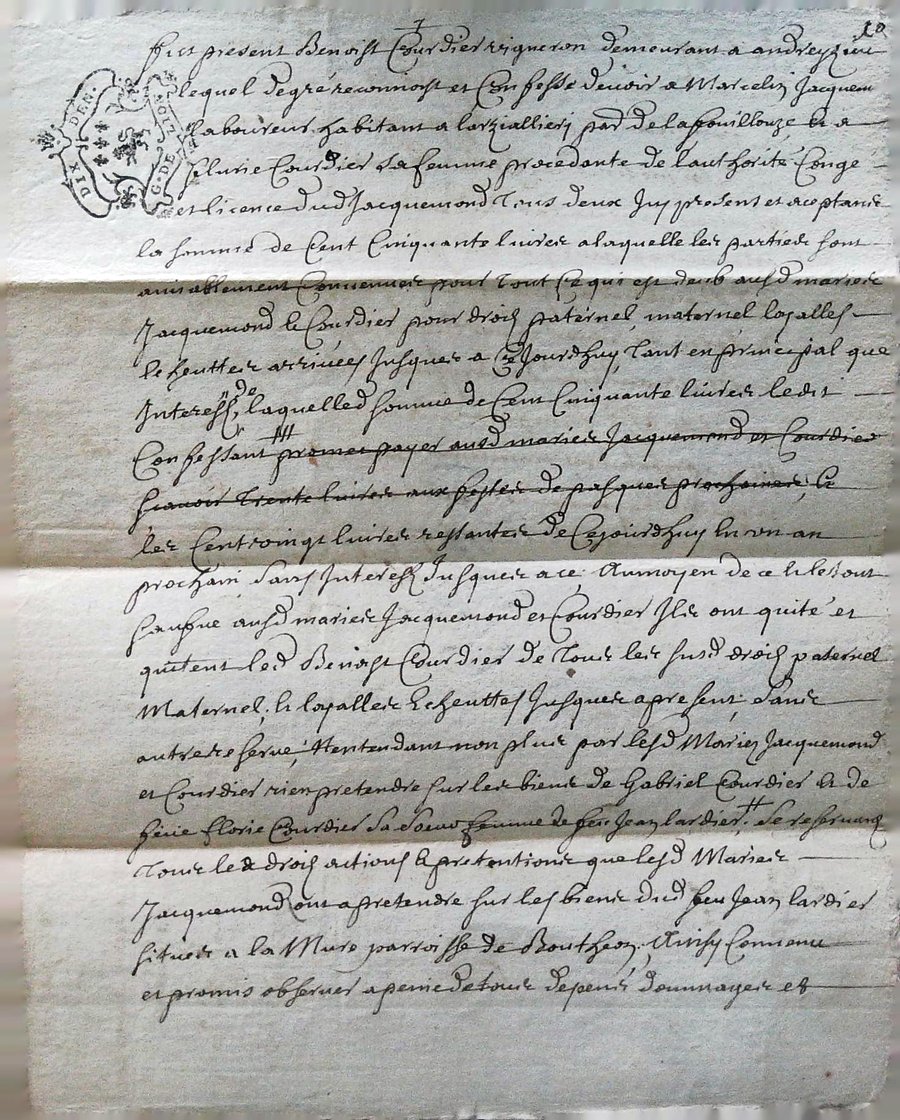 fust present Benoist Courdier vigneron demeurant a
lequel de gré reconnoist et Confesse devoir a Marcelin Jacquem
Laboureur habitant a par de la fouillouze et a
Courdier sa femme procedante de l'authorité Congé
et licence dud Jacquemond tous deux Icy present et aceptans
la somme de Cent Cinquante livres a laquelle les parties sont
amiablement Convenues pour tout Ce qui est deub ausd maries
Jacquemond & Courdier pour droits paternel, maternel loyalles
escheuttes arrivées Jusques a Ce Jourdhuy, tant en principal que
Interests, laquelled somme de Cent Cinquante livres ledit
Confessant promet payer ausd maries Jacquemond et Courdier
scavoir Trente livres aux festes de pasques prochaines, &
les Cent vingt livres restantes de Cejourdhuy en un an
prochain sans Interest Jusques a ce Aumoyen de ce
ausd maries Jacquemond et Courdier Ils ont quité et
quitent led Benoist Courdier de tous les susd droits paternel
Maternel, & loyalles Escheuttes Jusques a present, sans
autre reserve, Nentendant non plus par lesd Maries Jacquemond
et Courdier rien pretendre sur les biens de Gabriel Courdier et de
florie Courdier sa soeur femme de feu Jean lardier, # se reservant
Tous les droits actions & pretentions que lesd Maries
Jacquemond ont a pretendre sur les biens dud feu Jean lardier
situes a la Mure parroisse de Boutheon, Ainsy Convenu
et promis observer a peine de tous depens dommages et
DIX DEN.
G. DE LION